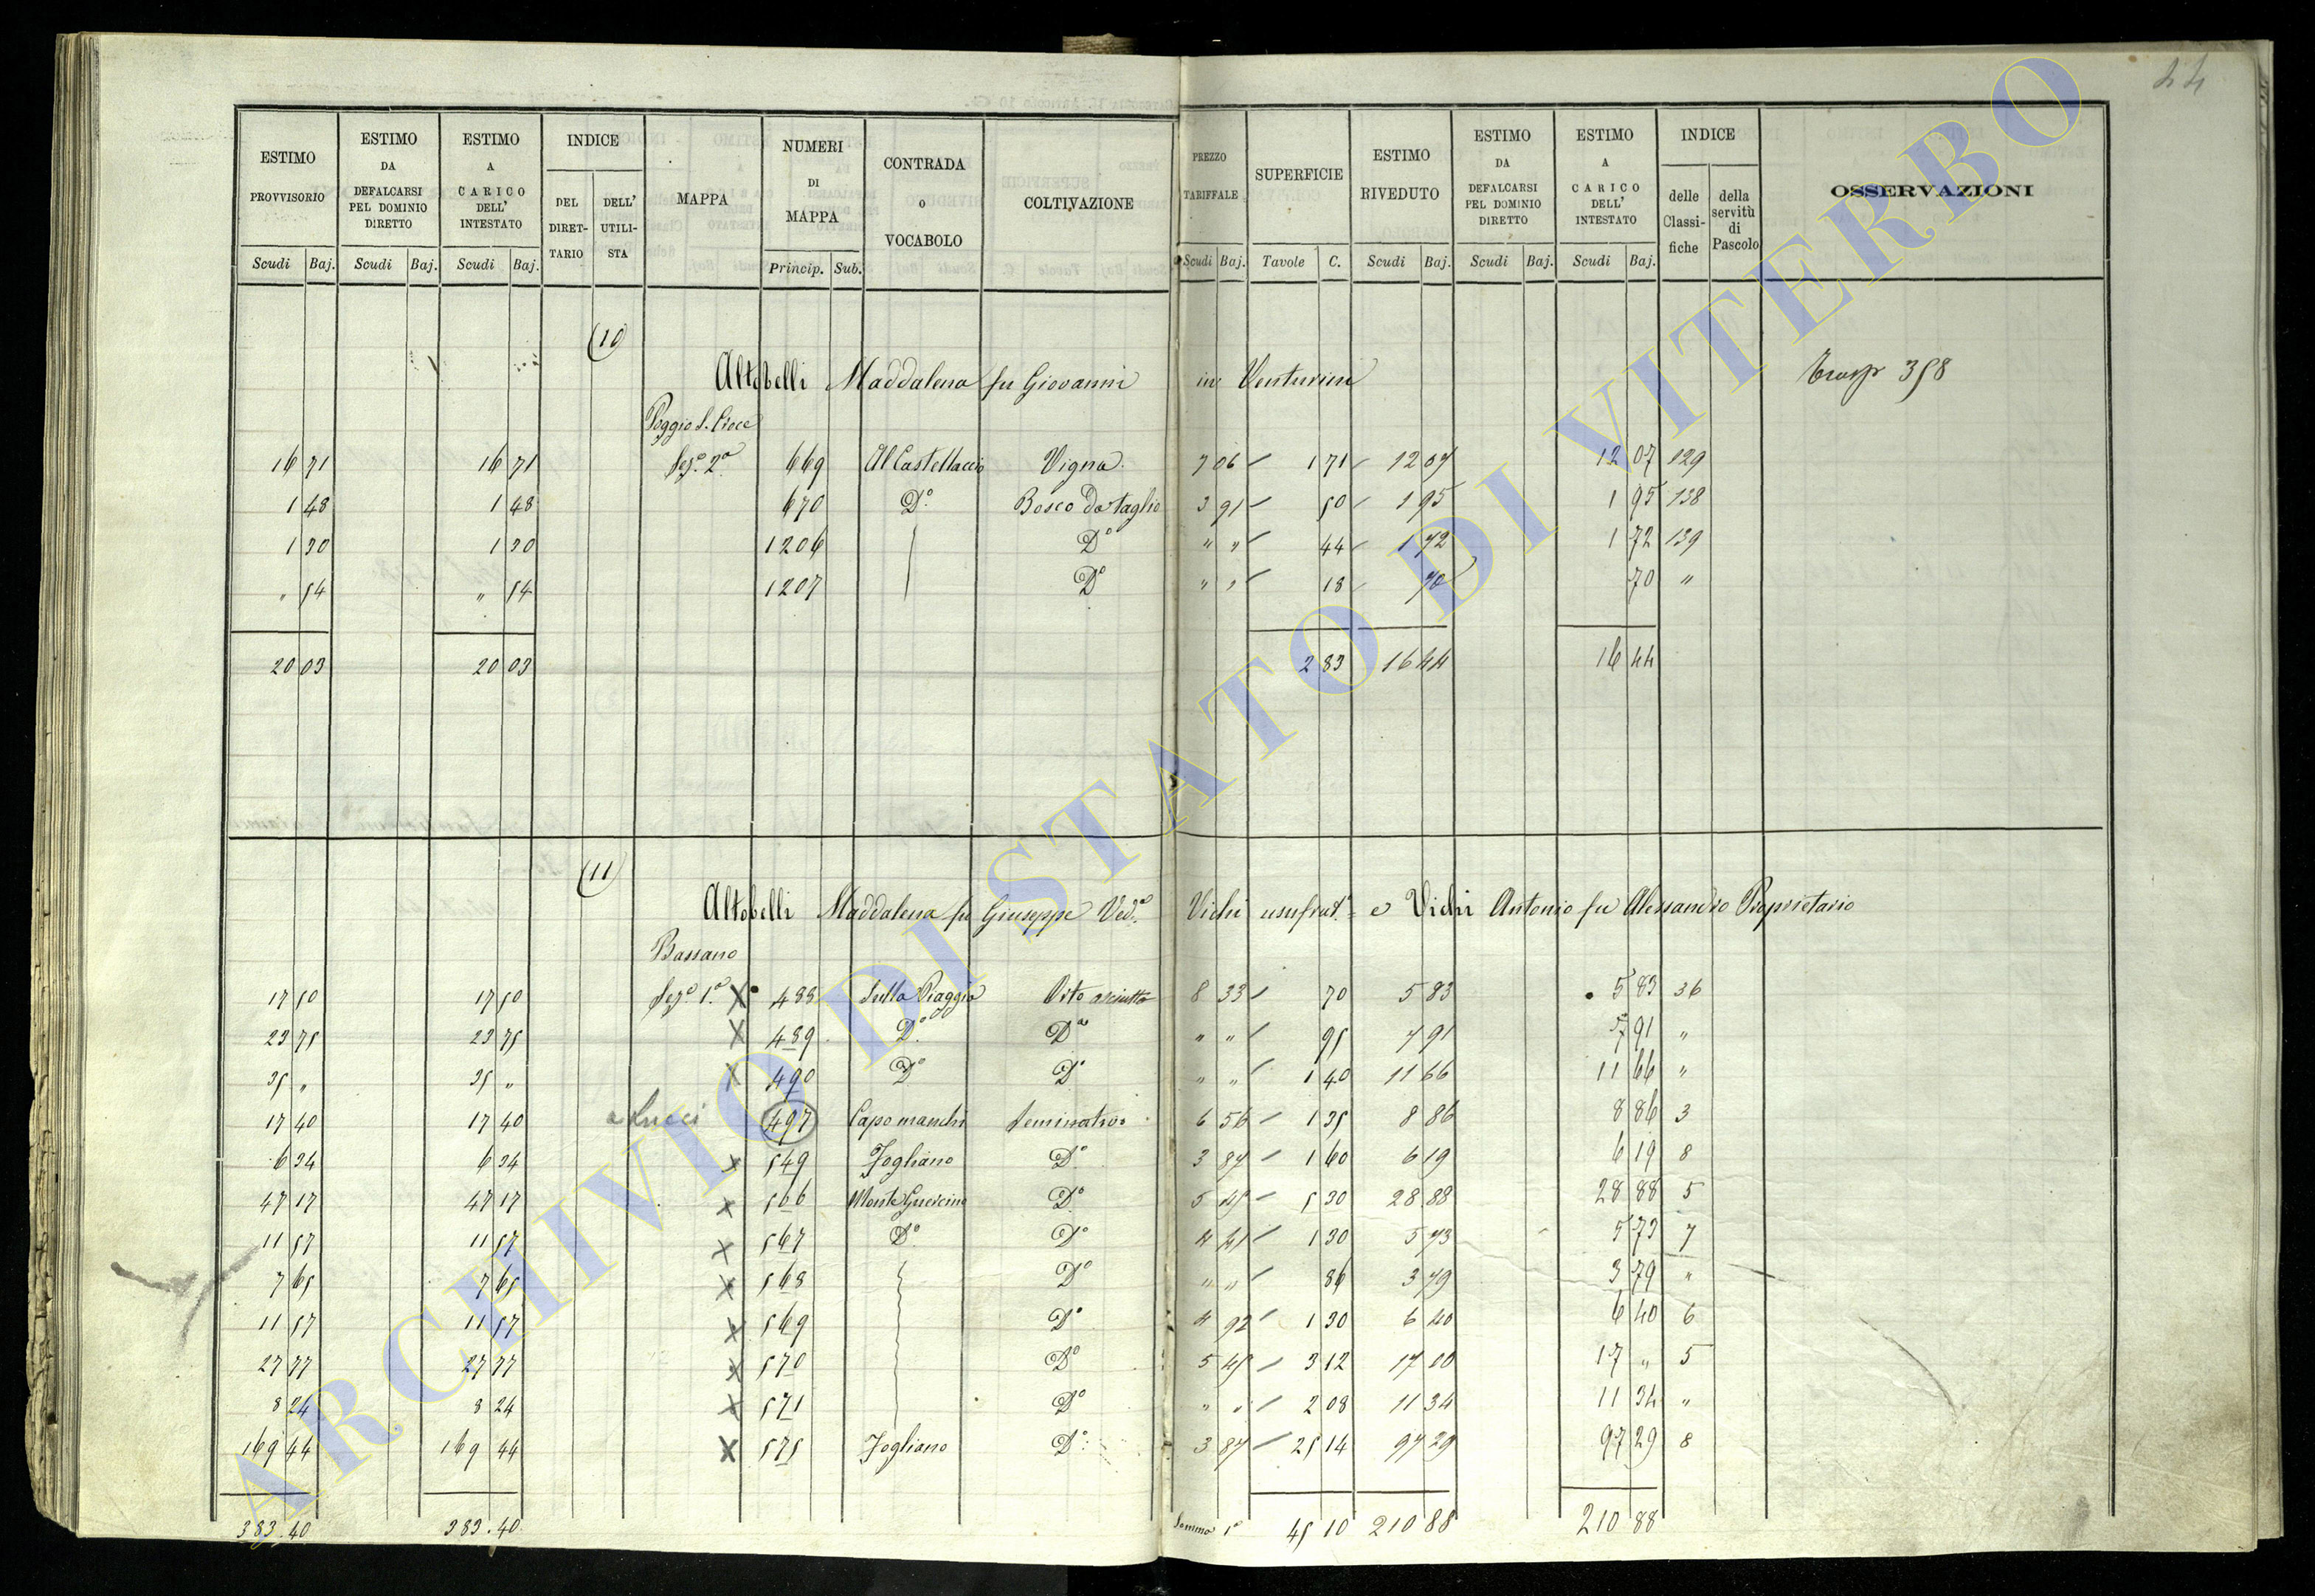 44
ESTIMO PROVVISORIO | ESTIMO DA DEFALCARSI PEL DOMINIO DIRETTO | ESTIMO A CARICO DELL' INTESTATO | INDICE DEL DIRETTARIO | DELL' UTILISTA | MAPPA | NUMERI DI MAPPA | CONTRADA O VOCABOLO | COLTIVAZIONE | PREZZO TARIFFALE | SUPERFICIE | ESTIMO RIVEDUTO | ESTIMO DA DEFALCARSI PEL DOMINIO DIRETTO | ESTIMO A CARICO DELL' INTESTATO | INDICE delle Classifiche | della servitù di Pascolo | OSSERVAZIONI
Scudi Baj. | Scudi Baj. | Scudi Baj. | Princip. Sub. | Scudi Baj. | Tavole C. | Scudi Baj. | Scudi Baj. | Scudi Baj.
(10)
Altobelli Maddalena fu Giovanni in Venturini Trasp 358
Poggio S. Croce
16 71 | 16 71 | Sez.e 2a | 669 | Al Castellaccio | Vigna | 7 06 | 1 71 | 12 07 | 12 07 | 129
1 48 | 1 48 | 670 | Do. | Bosco da taglio | 3 91 | 50 | 1 95 | 1 95 | 138
1 30 | 1 30 | 1206 | Do | " " | 44 | 1 72 | 1 72 | 139
" 54 | " 54 | 1207 | Do | " " | 18 | 70 | 70 | "
20 03 | 20 03 | 2 83 | 16 44 | 16 44
(11)
Altobelli Maddalena fu Giuseppe Ved.a Vichi usufrut. e Vichi Antonio fu Alessandro Proprietario
Bassano
17 50 | 17 50 | Sez.e 1a X | 488 | Sulla Piaggia | Vito asciutto | 8 33 | 70 | 5 83 | 5 83 | 36
23 75 | 23 75 | X | 489 | Do. | Do | " " | 95 | 7 91 | 7 91 | "
35 " | 35 " | X | 490 | Do | Do | " " | 1 40 | 11 66 | 11 66 | "
17 40 | 17 40 | a Lucci | 497 | Capo manchi | Seminativo | 6 56 | 1 35 | 8 86 | 8 86 | 3
6 34 | 6 34 | X | 549 | Fogliano | Do | 3 87 | 1 60 | 6 19 | 6 19 | 8
47 17 | 47 17 | X | 566 | Monte Guercino | Do | 5 45 | 5 30 | 28 88 | 28 88 | 5
11 57 | 11 57 | X | 567 | Do | Do | 4 41 | 1 30 | 5 73 | 5 73 | 7
7 65 | 7 65 | X | 568 | Do | " " | 86 | 3 79 | 3 79 | "
11 57 | 11 57 | X | 569 | Do | 4 92 | 1 30 | 6 40 | 6 40 | 6
27 77 | 27 77 | X | 570 | Do | 5 45 | 3 12 | 17 00 | 17 " | 5
8 24 | 8 24 | X | 571 | Do | " " | 2 08 | 11 34 | 11 34 | "
169 44 | 169 44 | X | 575 | Fogliano | Do | 3 87 | 25 14 | 97 29 | 97 29 | 8
383.40 | 383.40 | Somma 1a | 45 10 | 210 88 | 210 88
ARCHIVIO DI STATO DI VITERBO